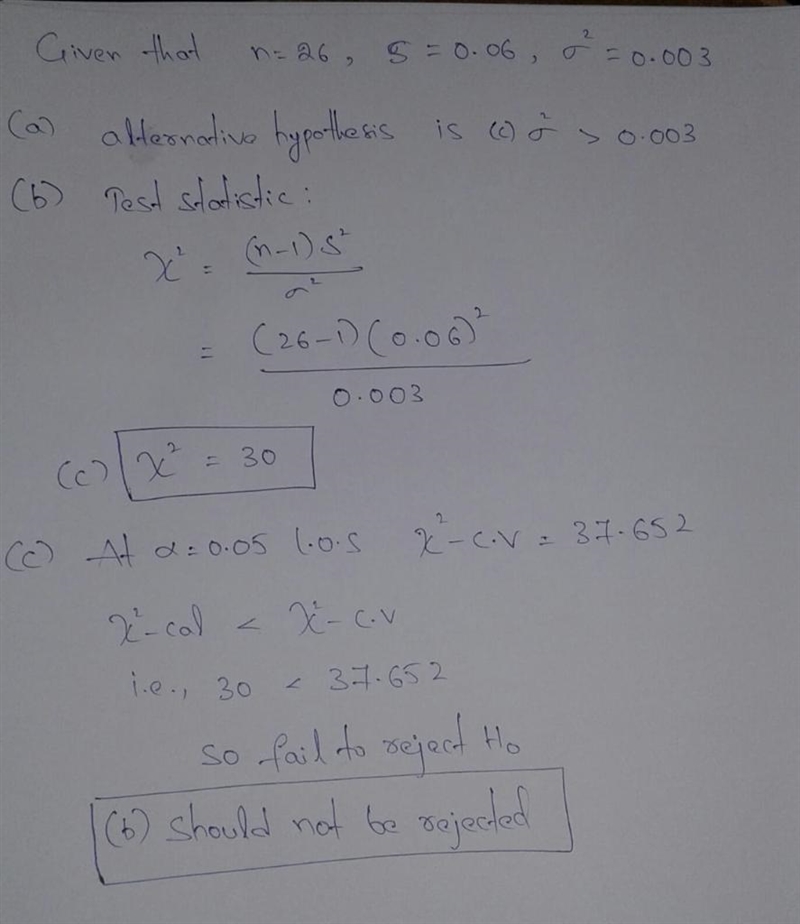 Given that n=26, S=0.06, σ²=0.003
(a) alternative hypothesis is (c) σ² > 0.003
(b) Test statistic:
χ² = (n-1)S² / σ²
= (26-1)(0.06)² / 0.003
(c) χ² = 30
(c) At α=0.05 l.o.s χ²-C.V = 37.652
χ²-cal < χ²-C.V
i.e., 30 < 37.652
So fail to reject H₀
(b) Should not be rejected